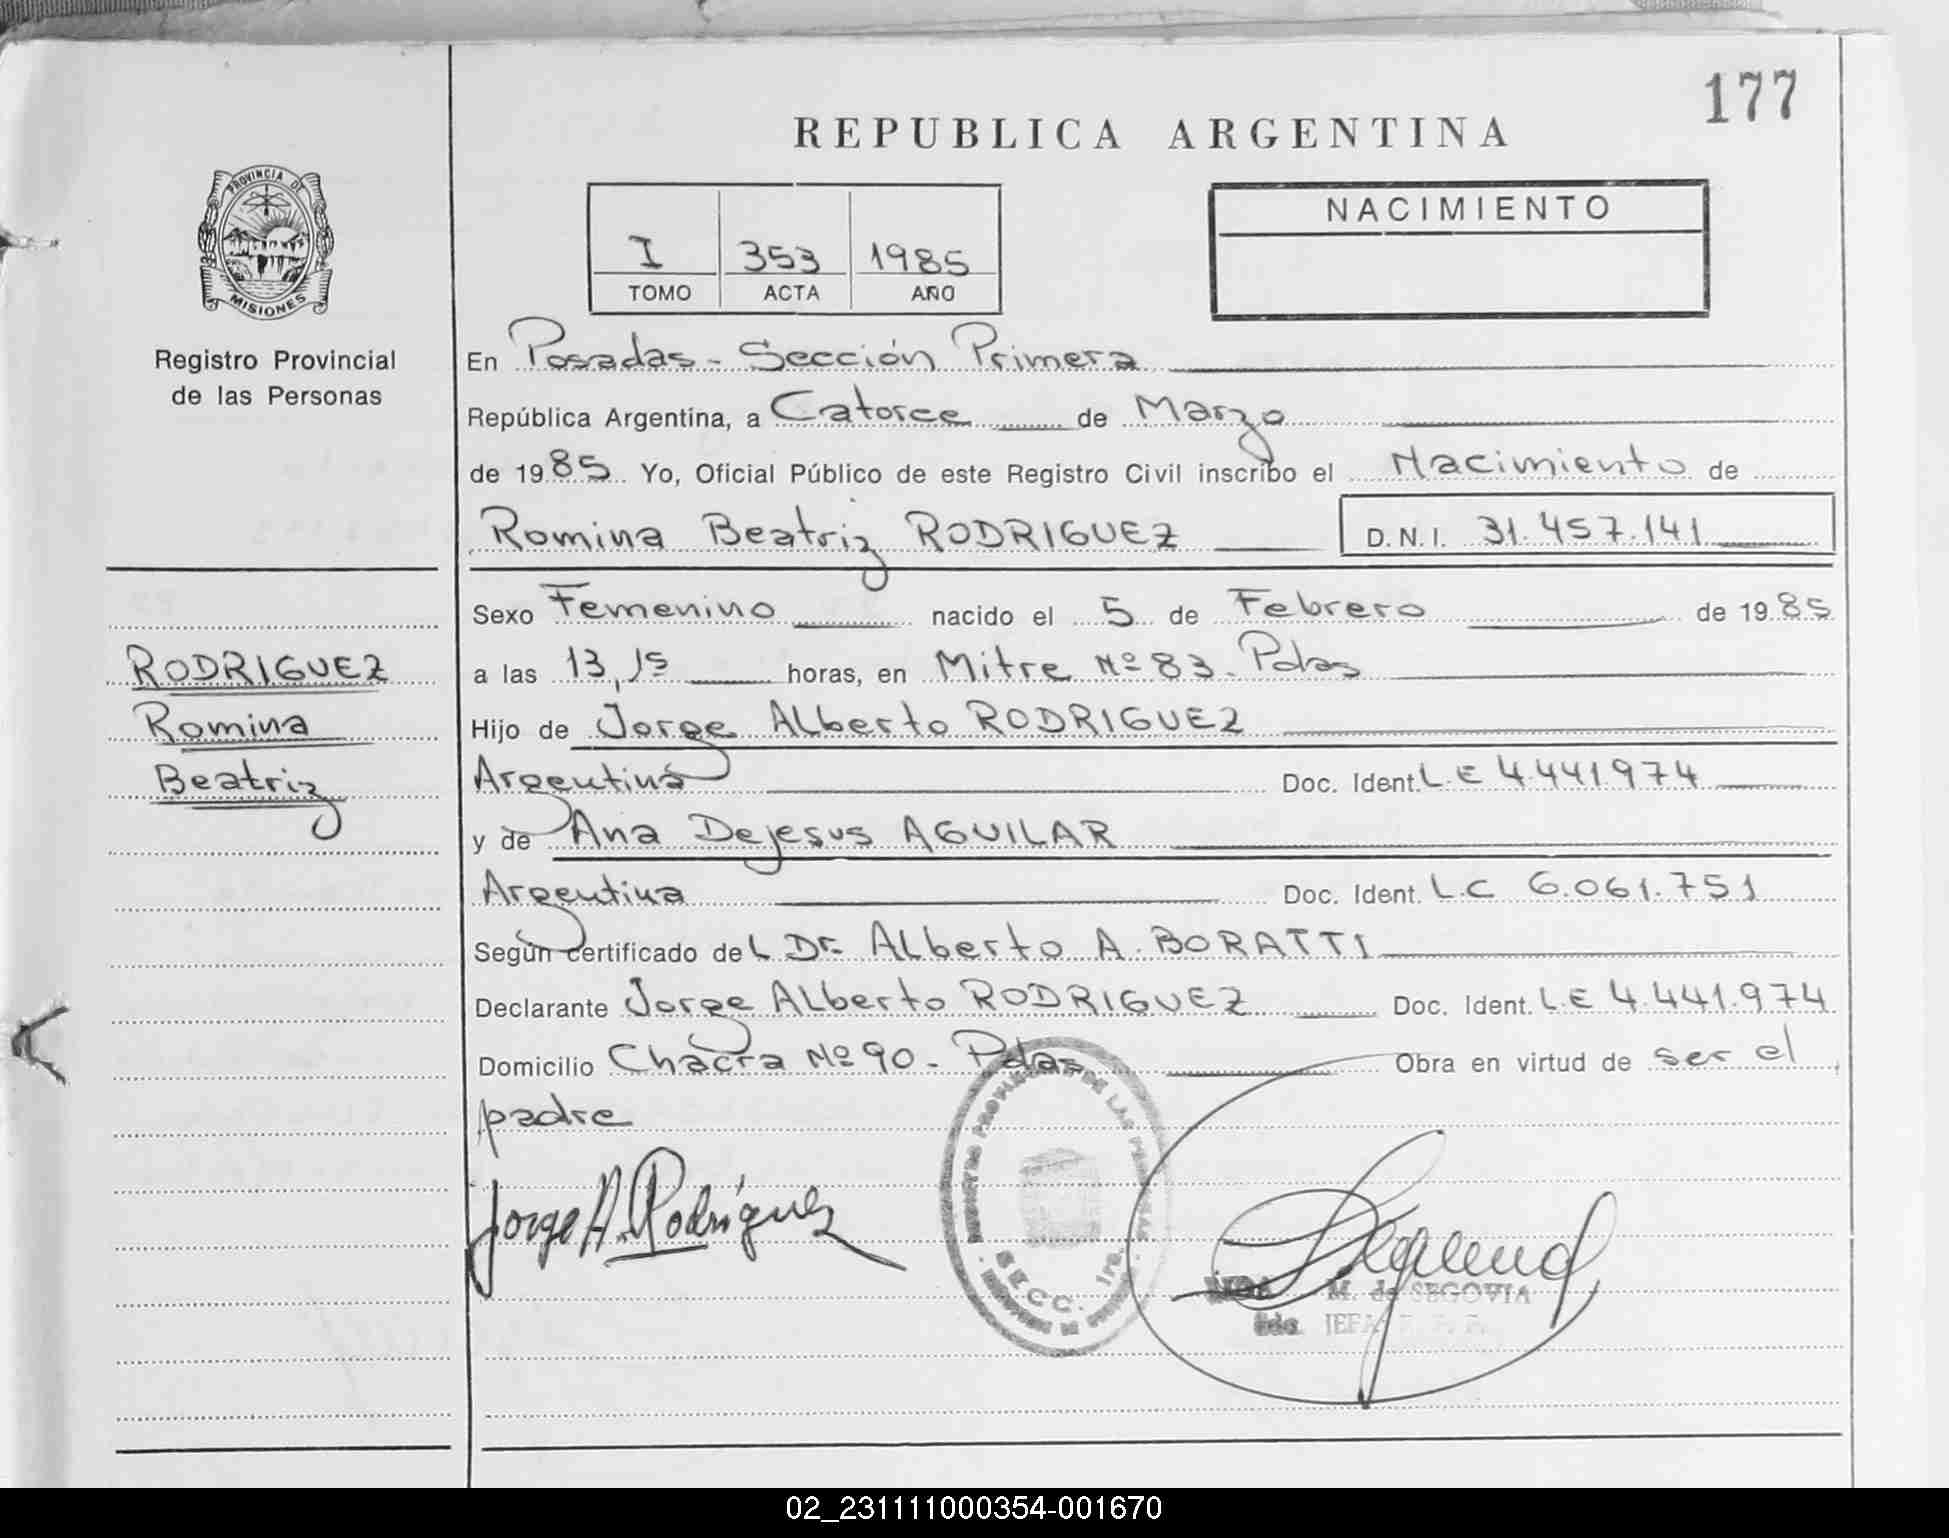 177
REPUBLICA ARGENTINA
PROVINCIA DE
MISIONES
Registro Provincial
de las Personas
I 353 1985
TOMO ACTA AÑO
NACIMIENTO
En Posadas - Sección Primera
República Argentina, a Catorce de Marzo
de 1985 Yo, Oficial Público de este Registro Civil inscribo el Nacimiento de
Romina Beatriz RODRIGUEZ D.N.I. 31.457.141
Sexo Femenino nacido el 5 de Febrero de 1985
a las 13,15 horas, en Mitre Nº 83. Pdas
Hijo de Jorge Alberto RODRIGUEZ
Argentina Doc. Ident. L.E 4.441974
y de Ana Dejesus AGUILAR
Argentina Doc. Ident. L.C 6.061.751
Según certificado del Dr. Alberto A. BORATTI
Declarante Jorge Alberto RODRIGUEZ Doc. Ident. L.E 4.441.974
Domicilio Chacra Nº 90 - Pdas Obra en virtud de ser el
padre
RODRIGUEZ
Romina
Beatriz
Jorge A. Rodríguez
DE LAS
SECC. 1ra.
M. de SEGOVIA
JEFA
02_231111000354-001670